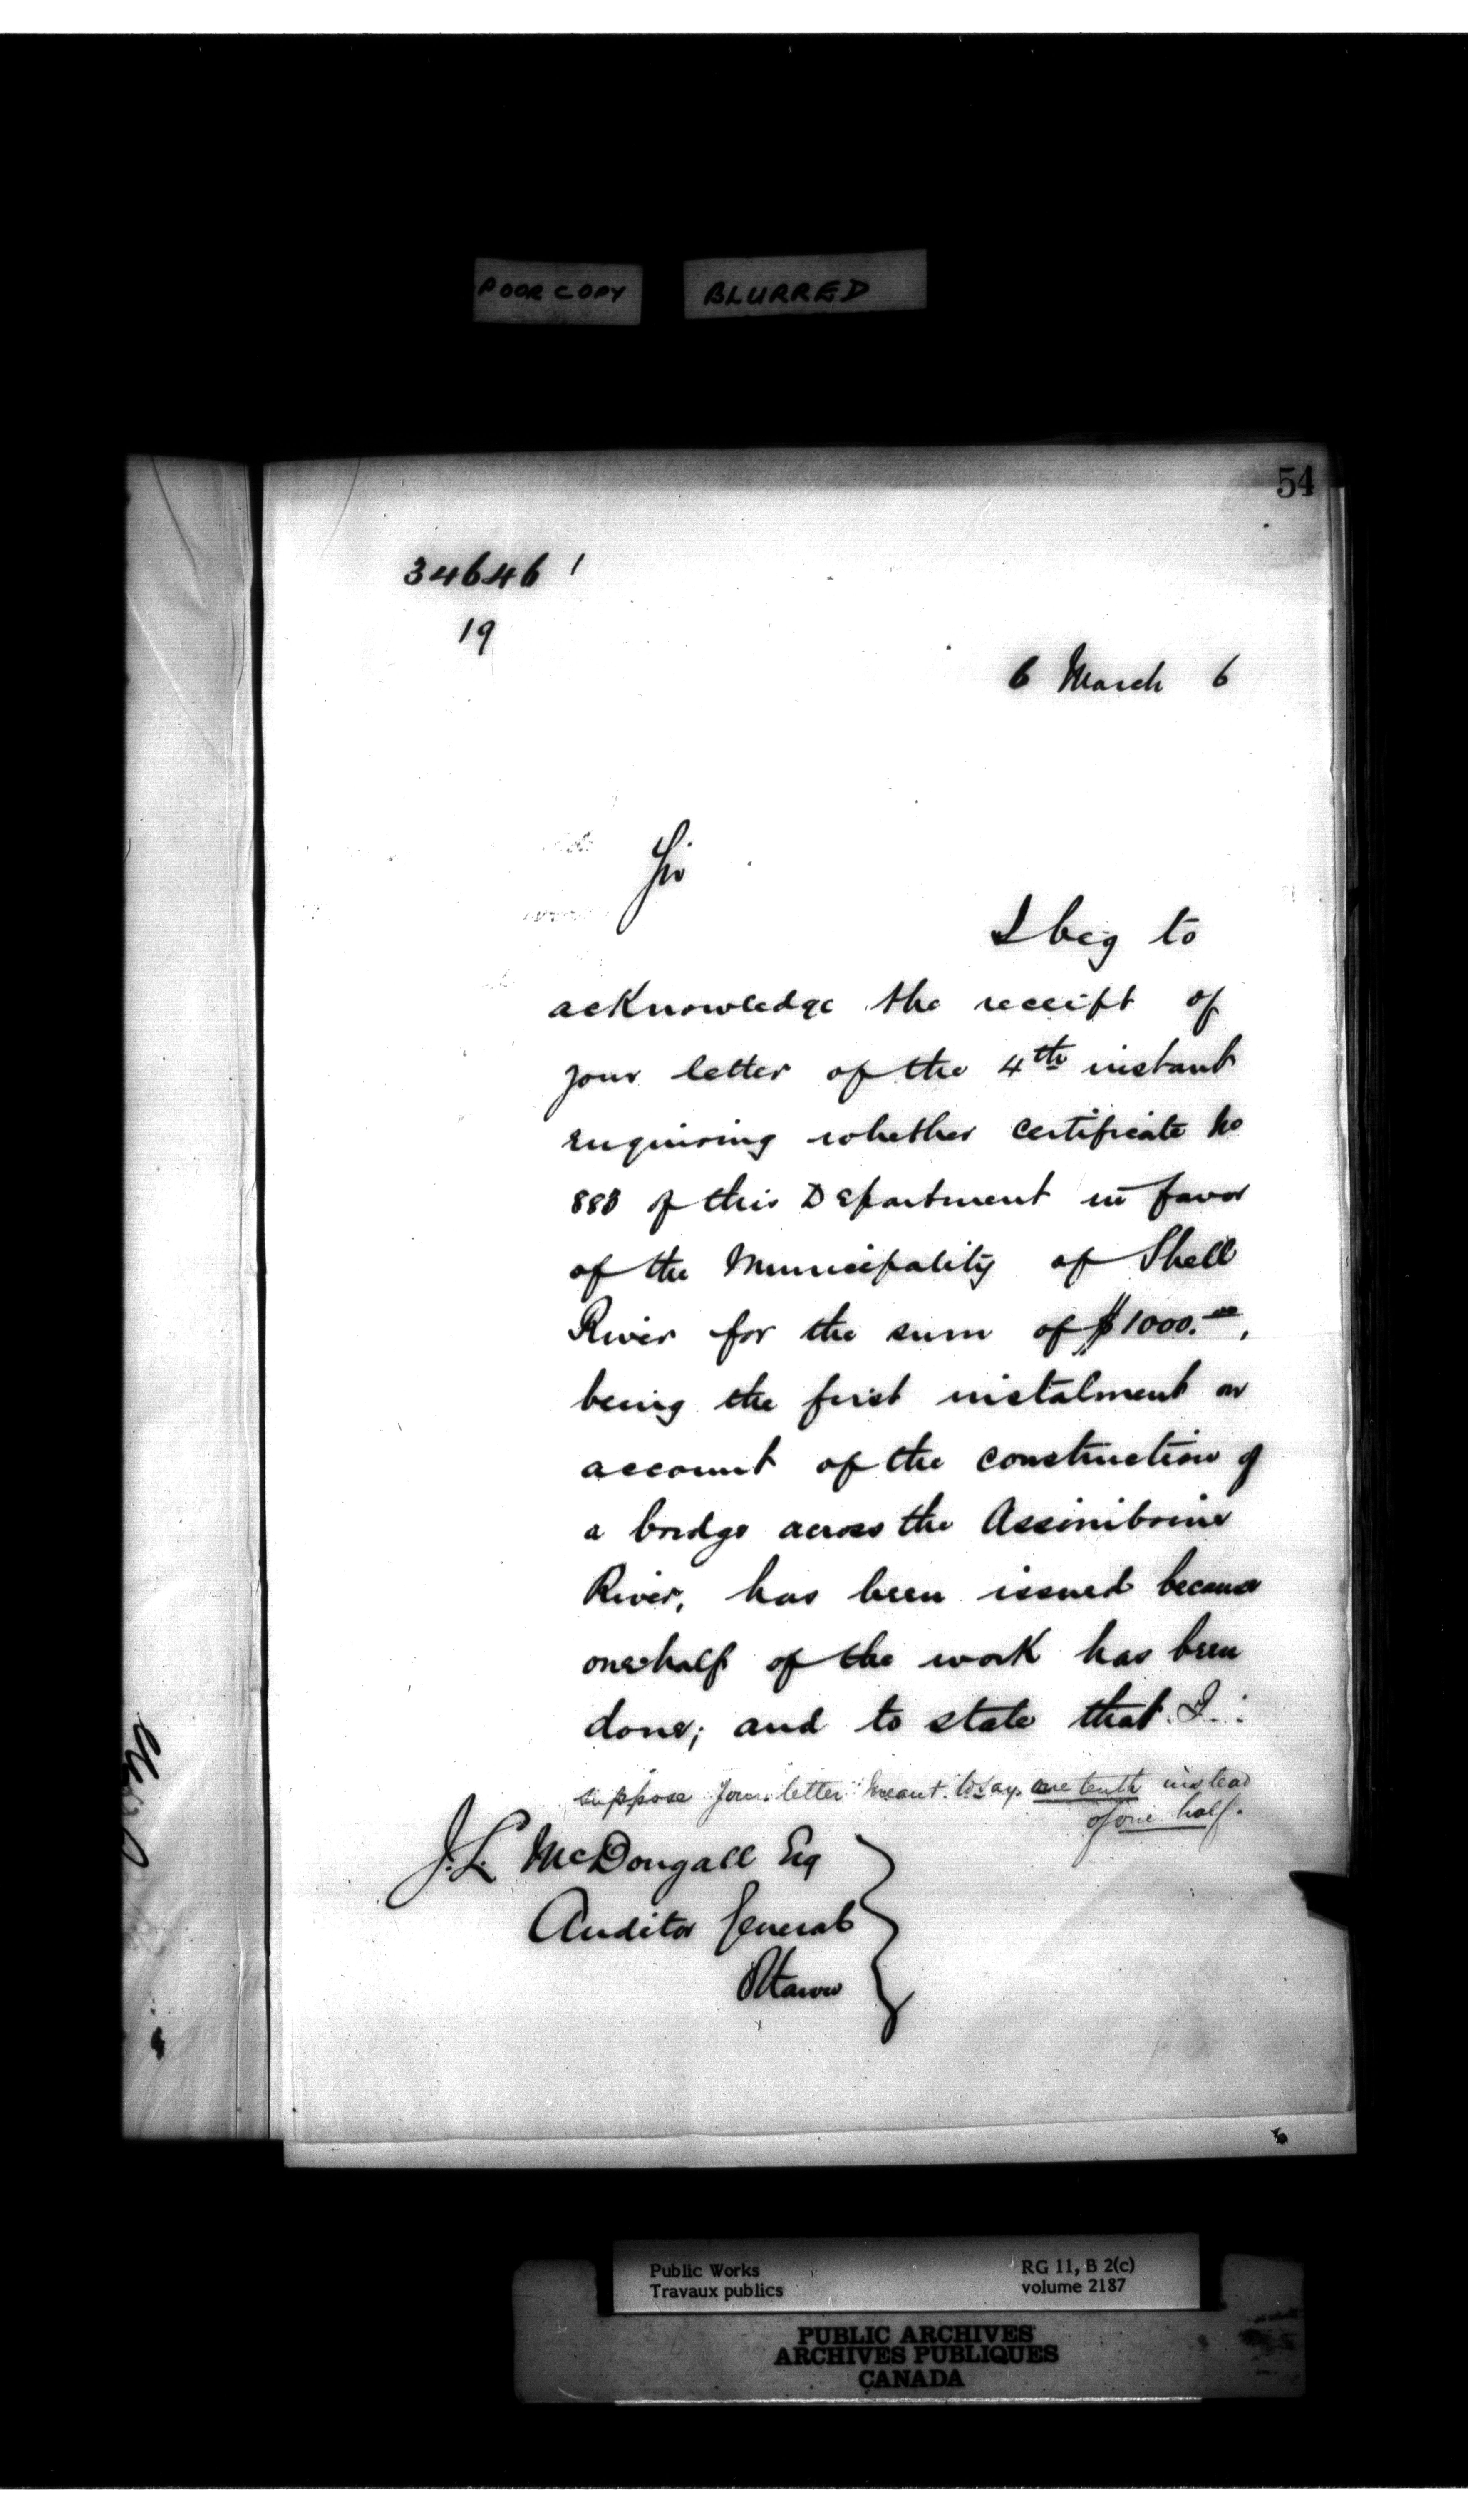 POOR COPY BLURRED
54
34646
19
6 March 6
Sir
I beg to
acknowledge the receipt of
your letter of the 4th instant
enquiring whether certificate No
888 of this Department in favor
of the Municipality of Shell
River for the sum of $1000.00,
being the first instalment on
account of the construction of
a bridge across the Assiniboine
River, has been issued because
one half of the work has been
done; and to state that I
suppose your letter meant to say one tenth instead
of one half.
J. L. McDougall Esq
Auditor General
Ottawa
Public Works RG 11, B 2(c)
Travaux publics volume 2187
PUBLIC ARCHIVES
ARCHIVES PUBLIQUES
CANADA